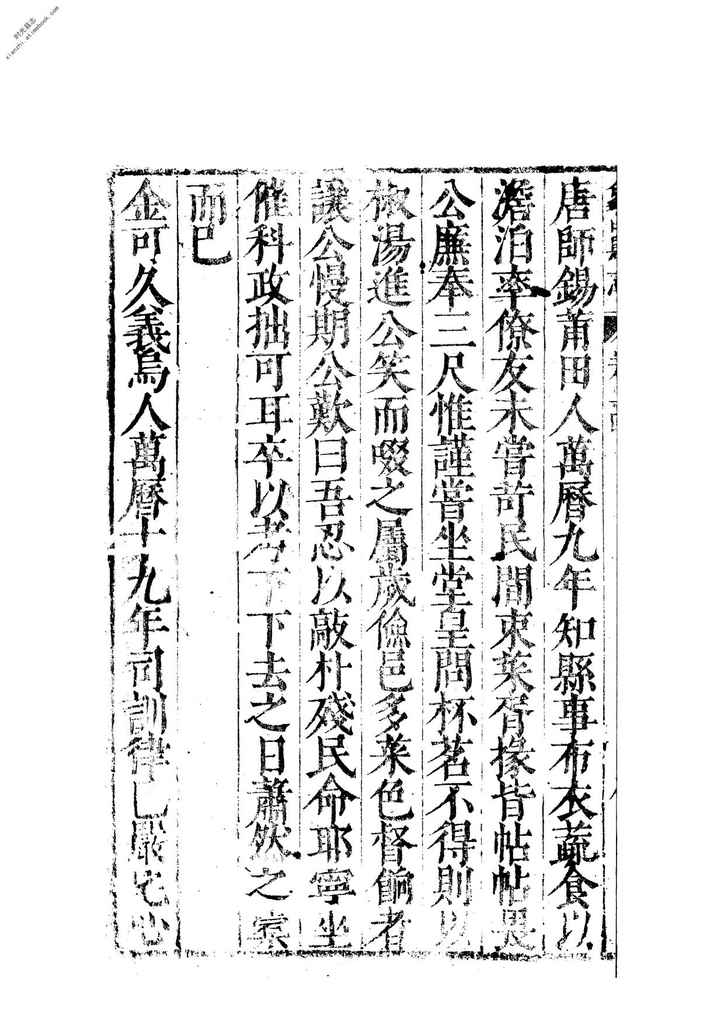 唐師錫莆田人萬曆九年知縣事布衣蔬食以
澹泊率僚友未嘗苛民間束菜胥掾皆帖帖畏
公廉奉三尺惟謹嘗坐堂皇問杯茗不得則以
椒湯進公笑而啜之屬歲儉邑多菜色督餉者
讓公慢期公歎曰吾忍以敲朴殘民命耶寧坐
催科政拙可耳卒以考下下去之日蕭然之橐
而已
金可久義烏人萬曆十九年司訓律己嚴
时光县志